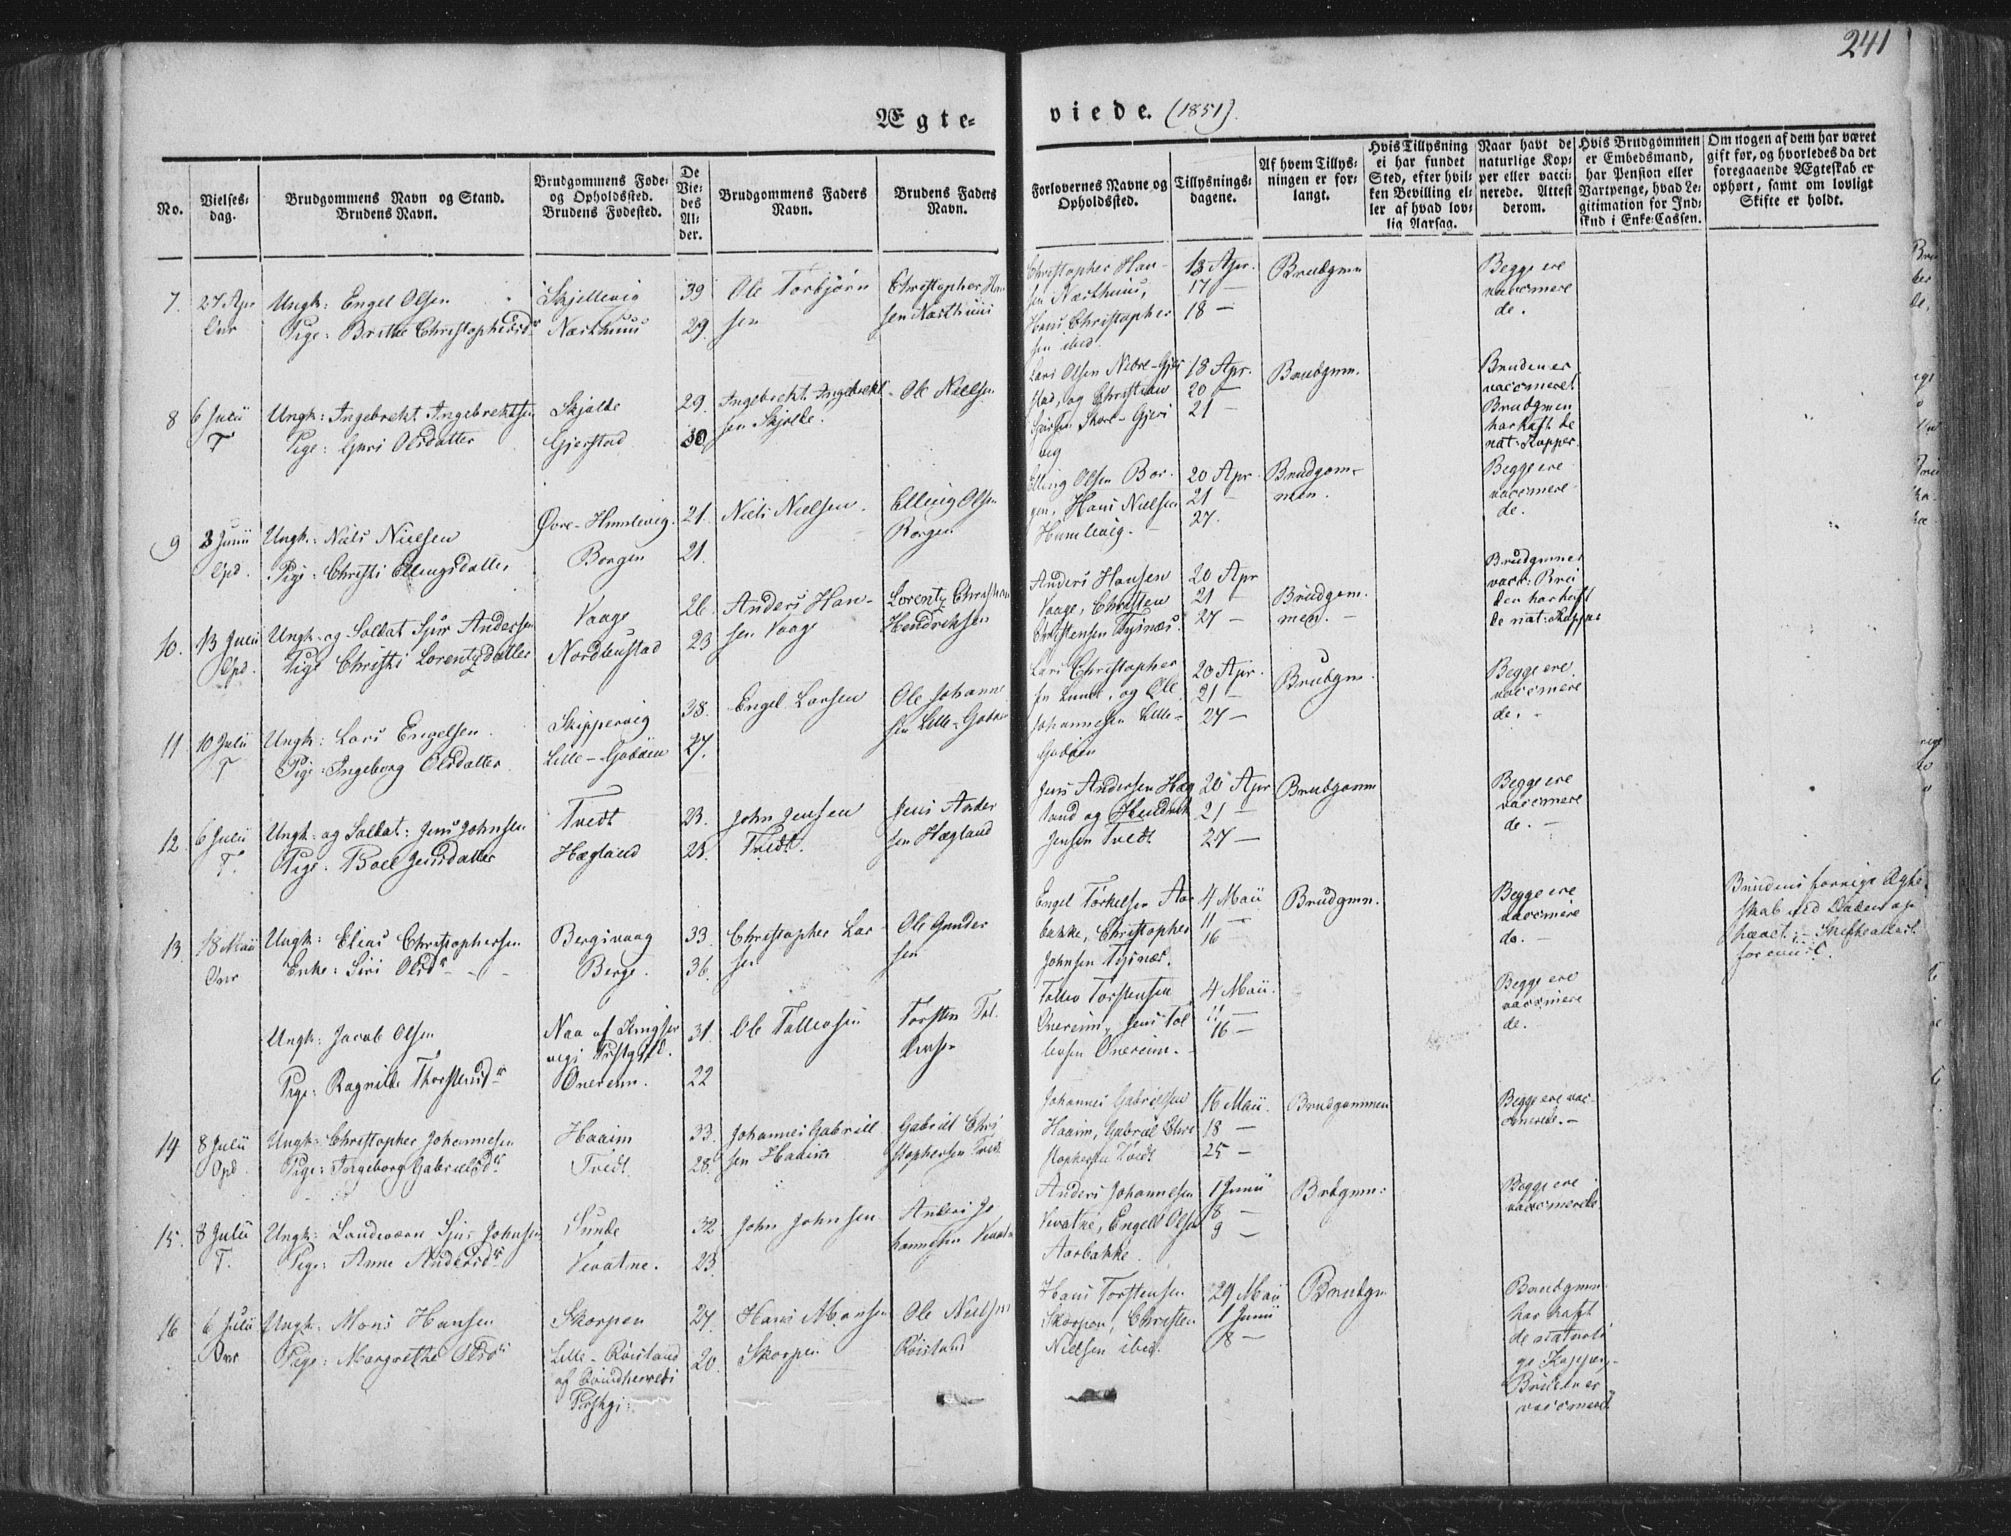 241
Ægte-
viede. (1851).
No.
Vielses-
dag.
Brudgommens Navn og Stand.
Brudens Navn.
Brudgommens Føde-
og Opholdssted.
Brudens Fødested.
De
Vie-
des
Al-
der.
Brudgommens Faders
Navn.
Brudens Faders
Navn.
Forlovernes Navne og
Opholdssted.
Tillysnings-
dagene.
Af hvem Tillys-
ningen er for-
langt.
Hvis Tillysning
ei har fundet
Sted, efter hvil-
ken Bevilling el-
ler af hvad lov-
lig Aarsag.
Naar havt de
naturlige Kop-
per eller vacci-
nerede. Attest
derom.
Hvis Brudgommen
er Embedsmand,
har Pension eller
Vartpenge, hvad Le-
gitimation for Ind-
skud i Enke-Cassen.
Om nogen af dem har været
gift før, og hvorledes da det
foregaaende Ægteskab er
ophørt, samt om lovligt
Skifte er holdt.
7.
27 Apr
Onr
Ungk: Engel Olsen
Pige: Brithe Christophersdr
Skjellevig
Næsthuus
39
29.
Ole Torbjørn
sen
Christopher Han
sen Næsthuus
Christopher Han-
sen Næsthuus,
Hans Christopher
sen ibid
13 Apr.
17 —
18 —
Brudgmn
Begge ere
vaccinere
de.
8
6 Julii
T
Ungk: Ingebrekt Ingebrektsen
Pige: Guri Olsdatter
Skjelde
Gjerstad
29.
30.
Ingebrekt Ingebrekt-
sen Skjelde.
Ole Nielsen
Lars Olsen Nedre-Gjer
stad, og Christian
18 Apr.
20 —
21 —
Brudgmn.
Bruden er
vaccineret
Brudgmen
har haft de
nat: Kopper.
9
3 Junii
Opd.
Ungk: Niels Nielsen
Pige: Christi Ellingsdatter
Øvre-Humlevig.
Borgen
21.
21.
Niels Nielsen.
Elling Olsen
Borgen
Elling Olsen Bor-
gen, Hans Nielsen
Humlevig.
20 Apr
21 —
27.
Brudgom-
men.
Begge ere
vaccinere
de.
10.
13 Julii
Opd.
Ungk- og Soldat Sjur Andersen
Pige Christi Lorentzdatter
Vaage
Nordtveitstad
26.
23
Anders Han-
sen Vaage
Lorentz Christian
Hendriksen
Anders Hansen
Vaage, Christen
Christensen Tysnæs.
20 Apr
21 —
27 —
Brudgom.
men. —
Brudgmnen
vacc: Bru
den har haft
de nat: Kopper
11
10 Julii
T
Ungk: Lars Engelsen.
Pige: Ingeborg Olsdatter
Skippervig
Lille-Godøen
38.
27.
Engel Larsen
Ole Johanne
sen Lille-Godøen
Lars Christopher
sen Lunde, og Ole
Johannesen Lille-
Godøen
20 Apr.
21 —
27 —
Brudgm.
Begge ere.
vaccinere
de. -
12
6 Julii
T.
Ungk- og Soldat: Jens Johnsen
Pige. Boel Jensdatter
Tvedt
Hægland
23.
28.
John Jensen
Tvedt.
Jens Ander
sen Hægland
Jens Andersen Hæg
land og Hendrich
Jensen Tvedt
20 Apr
21 —
27 —
Brudgomm
Begge ere
vaccinere
de. —
13
18 Maii
Onr
Ungk: Elias Christophersen
Enke: Siri Olsdr
Bergsvaag
Berge.
33.
36.
Christopher Lar-
sen
Ole Gunder
sen
Engel Torkelsen Aar
bakke, Christopher
Johnsen Tysnæs.
4 Maii
11 —
16
Brudgmn.
Begge ere
vaccinere
de. —
Brudens forrige Ægte-
skab ved Døden op
hævet.
Ungk: Jacob Olsen
Pige: Ragnilde Thorstensdr
Naa af Kingser
vigs Prstgjld.
Onereim.
31.
22
Ole Tollevsen
Torsten Tol
levsen
Tollev Torstensen
Onereim, Jens Tol
levsen Onereim. -
4 Maii.
11 —
16 —
Begge ere
vaccinere
de.
14
8 Julii
Opd.
Ungk: Christopher Johannesen
Pige: Ingeborg Gabrielsdr
Haaim
Tvedt
33.
28.
Johannes Gabriel
sen Haaim
Gabriel Chri
stophersen Tvedt
Johannes Gabrielsen
Haaim, Gabriel Chri
stophersen Tvedt
16 Maii.
18 —
25 —
Brudgommen
Begge ere vac-
cinerede. —
15.
8 Julii
T.
Ungk: Landværn Sjur Johnsen
Pige: Anne Andersdr
Sunde
Vevatne.
32.
23.
John Johnsen
Anders Jo
hannesen Vevatn
Anders Johannesen
Vevatne, Engel Olsen
Aarbakke.
1 Junii
8 —
9 —
Brdgmn:
Begge ere
vaccinerede.
16
6 Julii
Onr
Ungk: Mons Hansen
Pige: Margrethe Olsdr
Skorpen
Lille-Røisland
af Qvindherreds
Prstgj:
27.
20.
Hans Monsen
Skorpen
Ole Nielsen
Røisland
Hans Torstensen
Skorpen, Christen
Nielsen ibid.
29 Maii
1 Junii
8 —
Brudgm
Brudgmn
har haft
de naturli
ge Kopper,
Bruden er
vaccineret